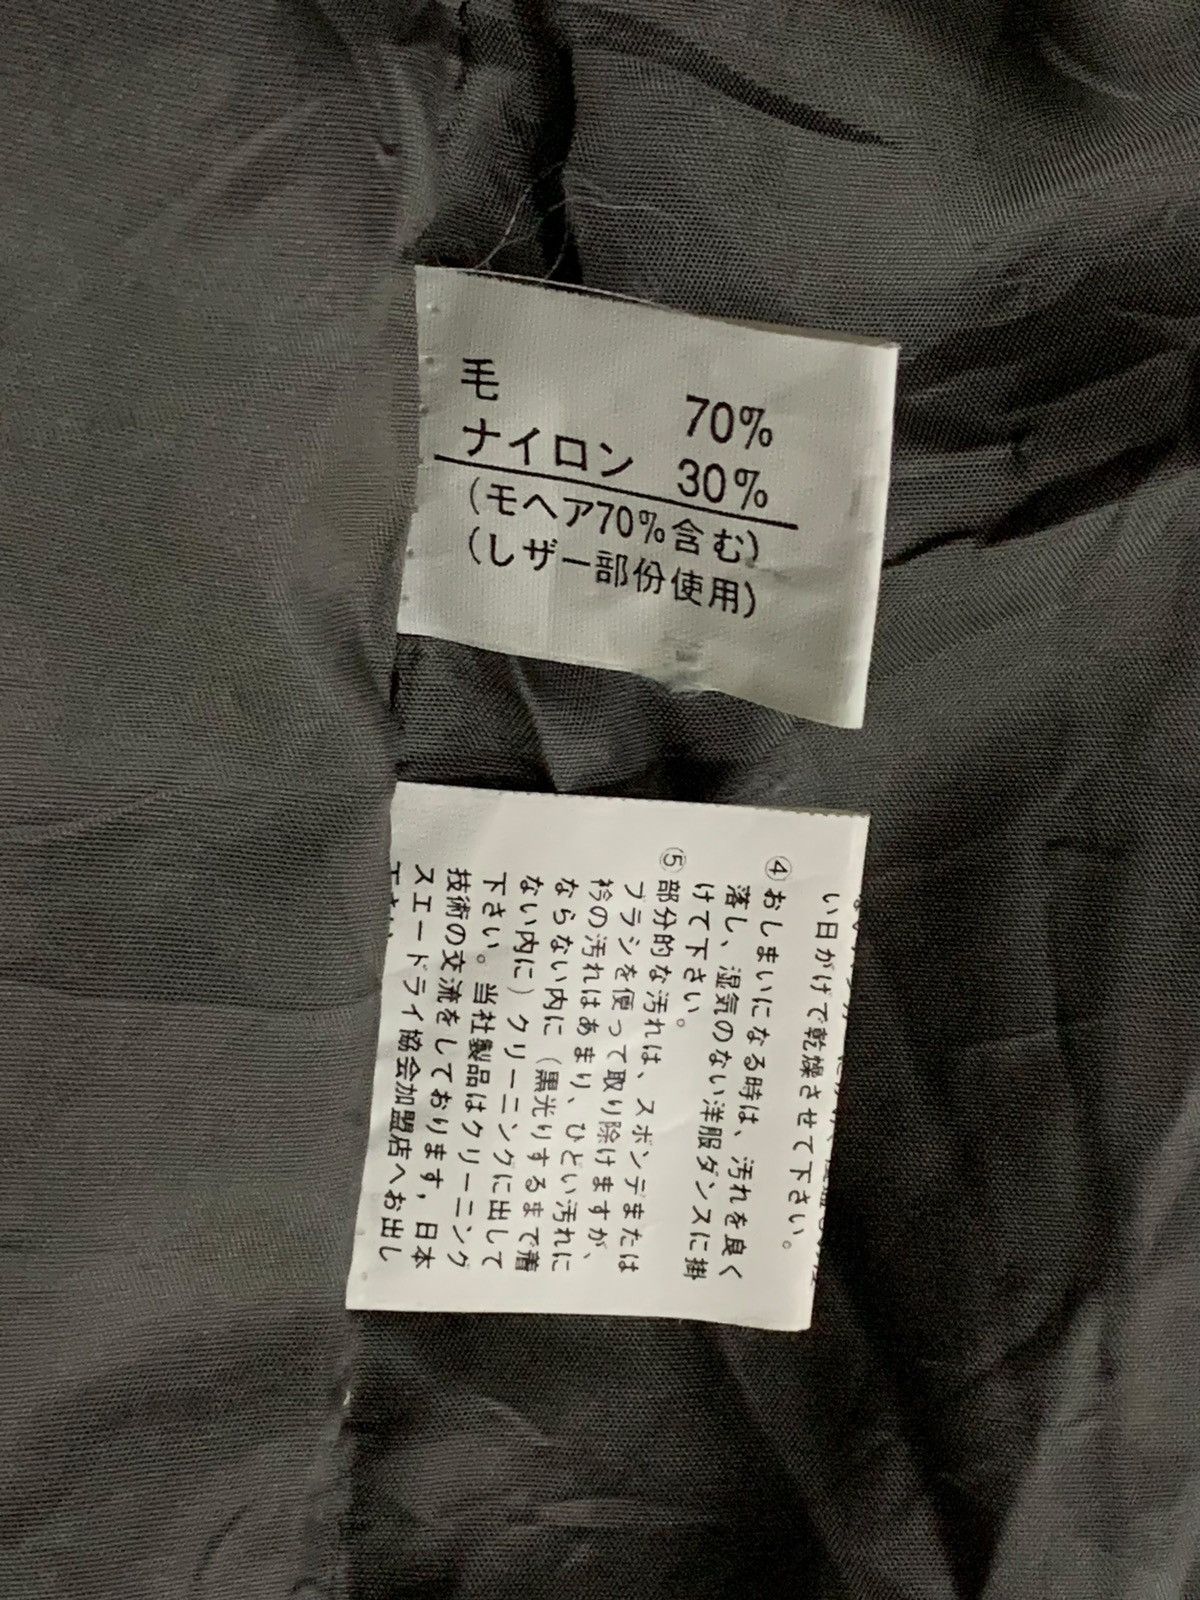 毛 70%
ナイロン 30%
(モヘア70%含む)
(しザー部份使用)
い日がげで乾燥させて下さい。
④おしまいになる時は、汚れを良く
落し、湿気のない洋服ダンスに掛
けて下さい。
⑤部分的な汚れは、スポンヂまたは
ブラシを使って取り除けますが、
衿の汚れはあまり、ひどい汚れに
ならない内に(黒光りするまで着
ない内に)クリーニングに出して
下さい。当社製品はクリーニング
技術の交流をしております，日本
スエードドライ協会加盟店へお出し